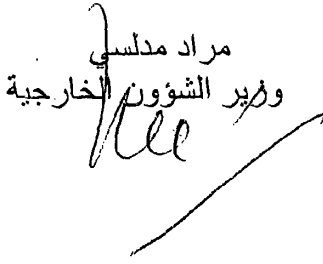 مراد مدلسي
وزير الشؤون الخارجية